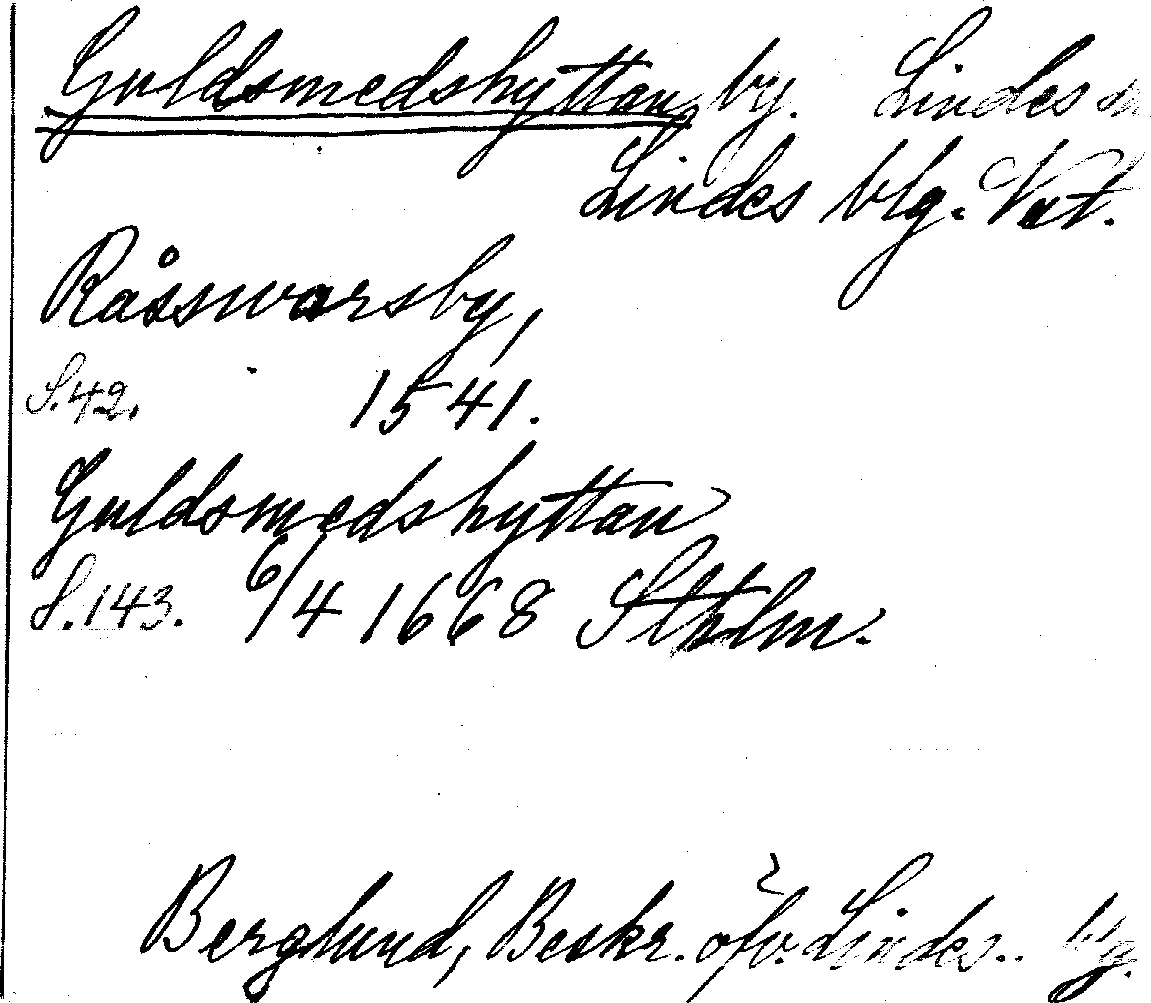 Guldsmedshyttan, by. Lindes sn
Lindes blg. Vst.
Råsswarsby,
S.42. 1541.
Guldsmedshyttan
S.143. 6/4 1668 Sthlm.
Berglund, Beskr. öfv. Lindes.. blg.